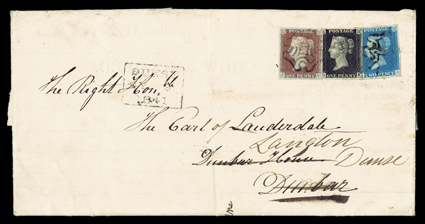 POSTAGE POSTAGE POSTAGE
ONE PENNY ONE PENNY TWO PENCE
The Right Hon.
The Earl of Lauderdale
Langton
Dunbar House Dunse
Dunbar